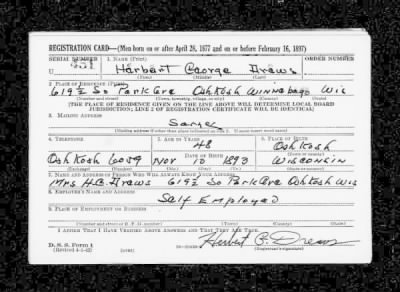 REGISTRATION CARD—(Men born on or after April 28, 1877 and on or before February 16, 1897)
SERIAL NUMBER
1. NAME (Print)
ORDER NUMBER
Herbert George Drews
(First) (Middle) (Last)
2. PLACE OF RESIDENCE (Print)
619½ So Park Ave Oshkosh Winnebago Wis
(Number and street) (Town, township, village, or city) (County) (State)
[THE PLACE OF RESIDENCE GIVEN ON THE LINE ABOVE WILL DETERMINE LOCAL BOARD
JURISDICTION; LINE 2 OF REGISTRATION CERTIFICATE WILL BE IDENTICAL]
3. MAILING ADDRESS
Same
[Mailing address if other than place indicated on line 2. If same insert word same]
4. TELEPHONE
5. AGE IN YEARS
6. PLACE OF BIRTH
48
Oshkosh
(Town or county)
DATE OF BIRTH
Oshkosh 6059 Nov 10 1893 Wisconsin
(Exchange) (Number) (Mo.) (Day) (Yr.) (State or country)
7. NAME AND ADDRESS OF PERSON WHO WILL ALWAYS KNOW YOUR ADDRESS
Mrs H.G. Drews 619½ So Park Ave Oshkosh Wis
8. EMPLOYER'S NAME AND ADDRESS
Self Employed
9. PLACE OF EMPLOYMENT OR BUSINESS
(Number and street or R. F. D. number) (Town) (County) (State)
I AFFIRM THAT I HAVE VERIFIED ABOVE ANSWERS AND THAT THEY ARE TRUE.
D. S. S. Form 1
(Revised 4-1-42)
(over)
Herbert G. Drews
(Registrant's signature)